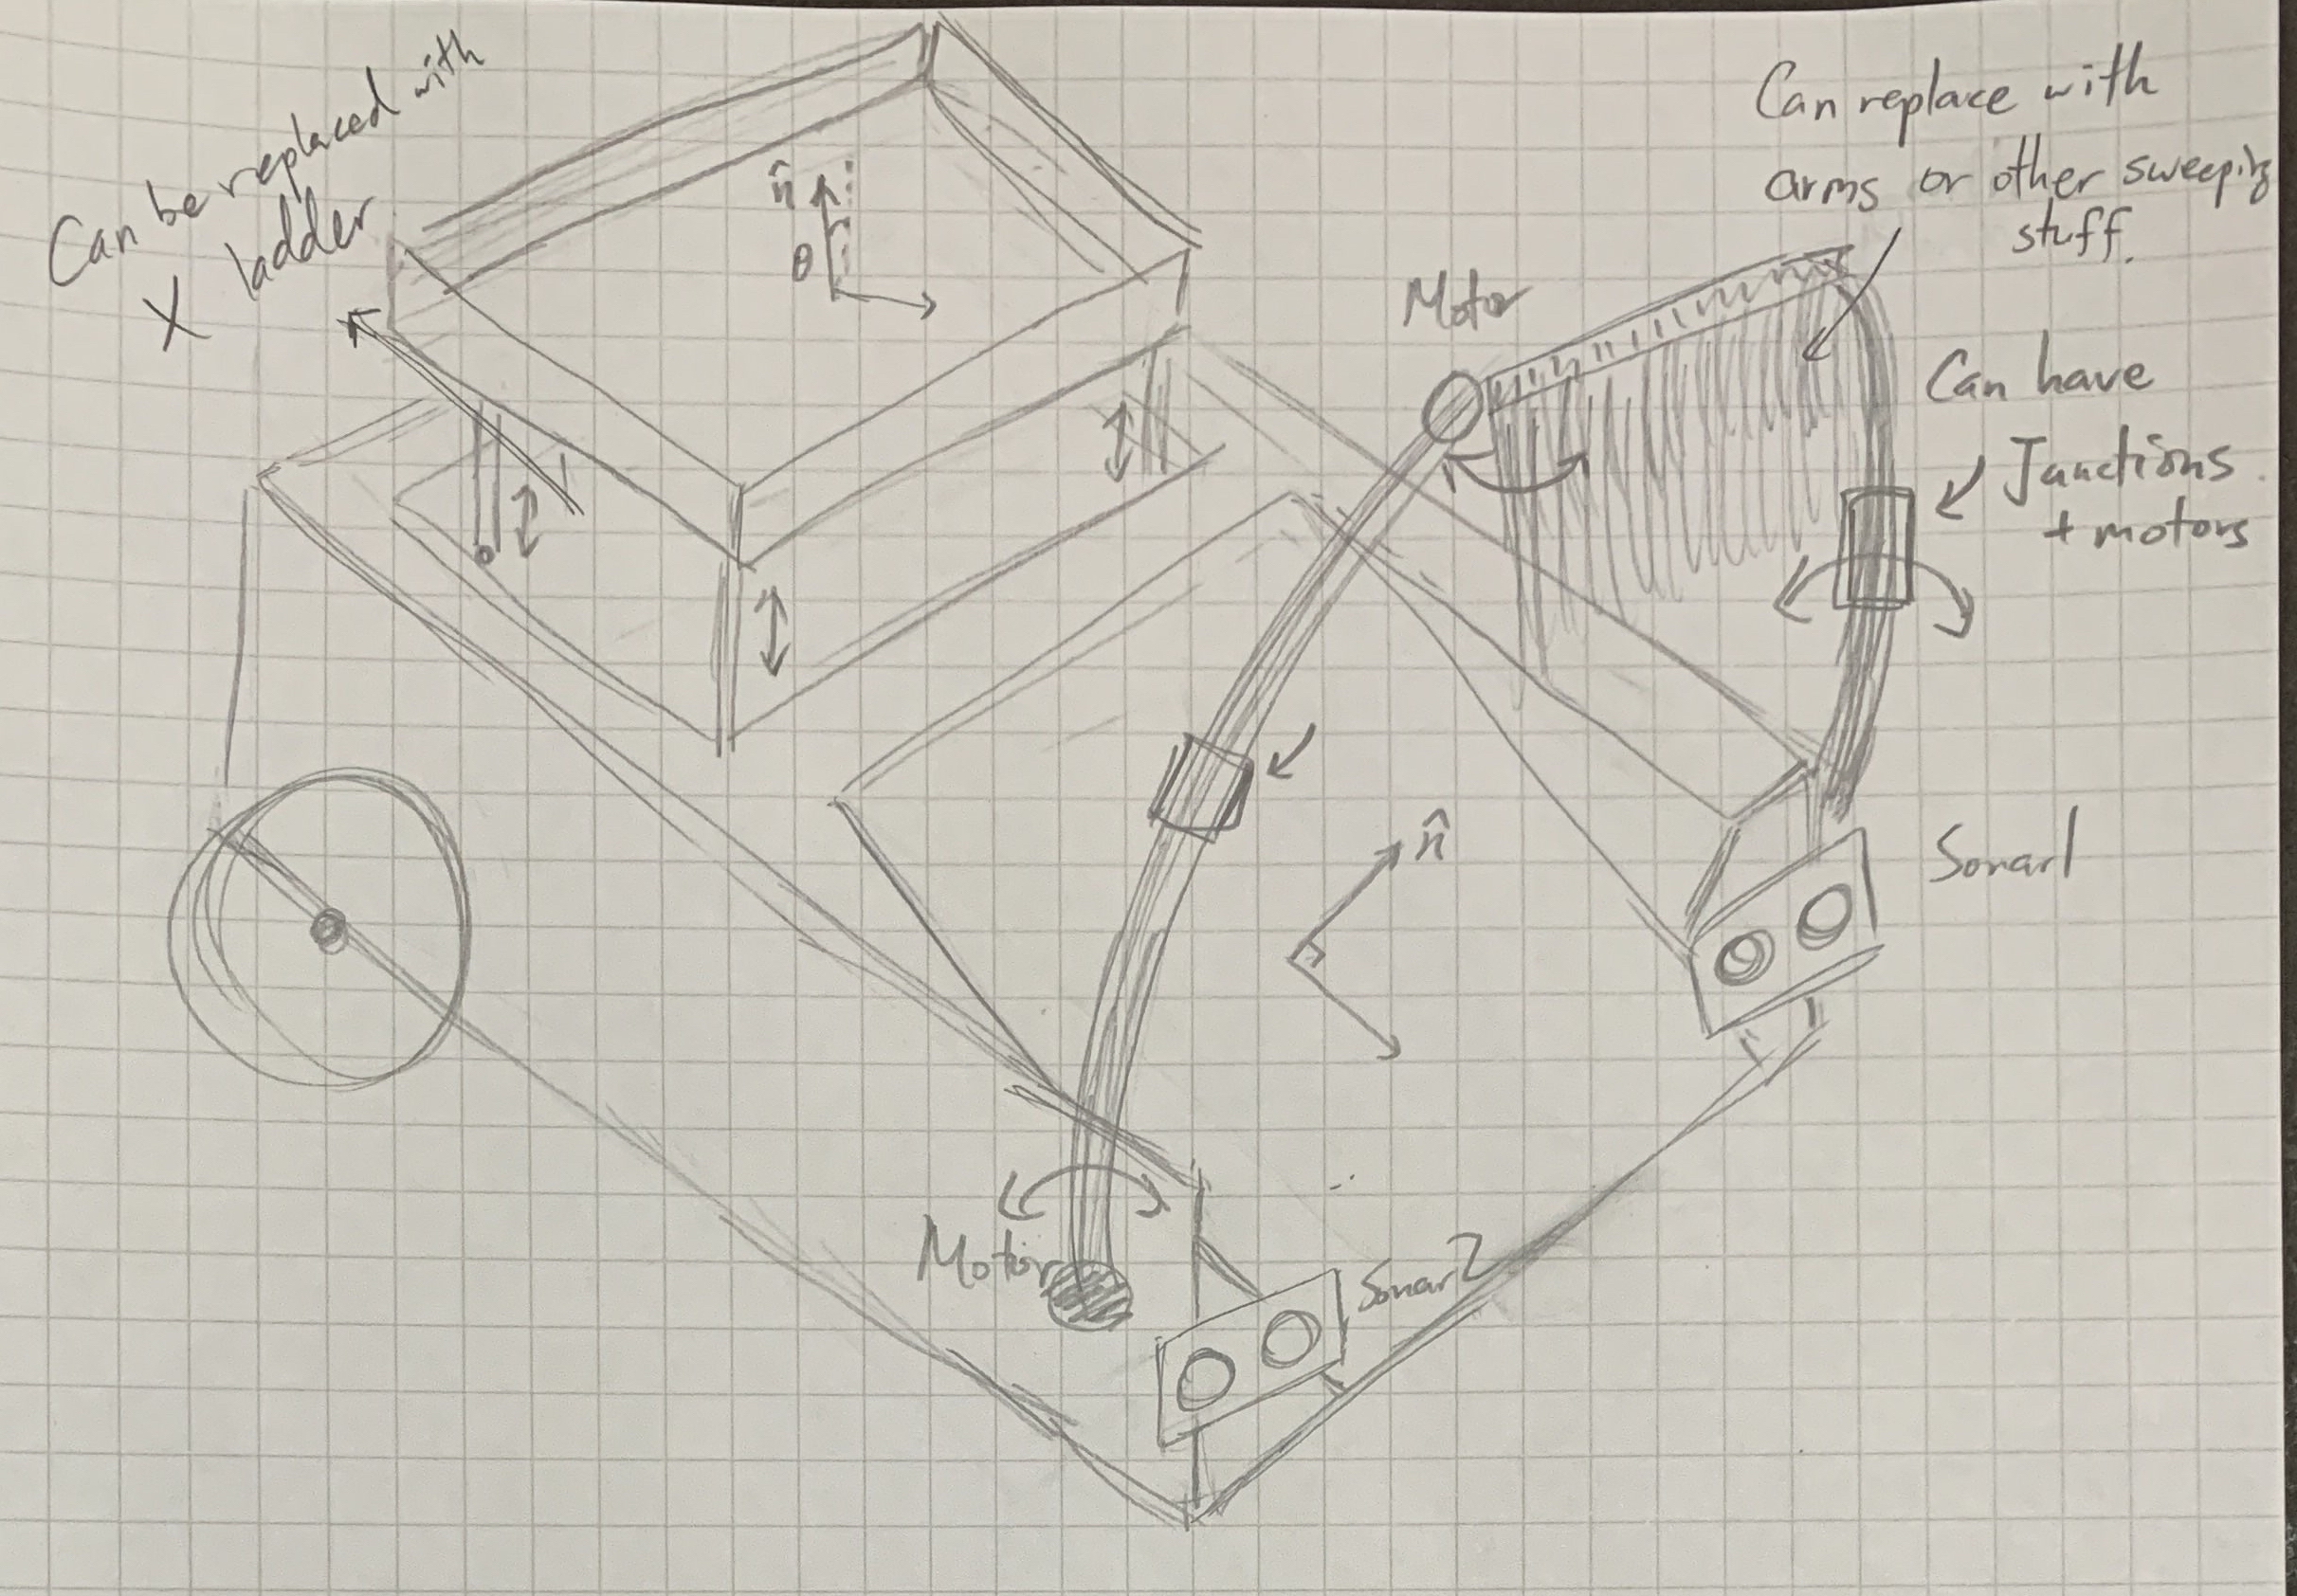 Can be replaced with
X ladder
n̂
θ
Can replace with
arms or other sweeping
stuff.
Motor
Can have
Junctions
+ motors
n̂
Sonar1
Motor
Sonar2